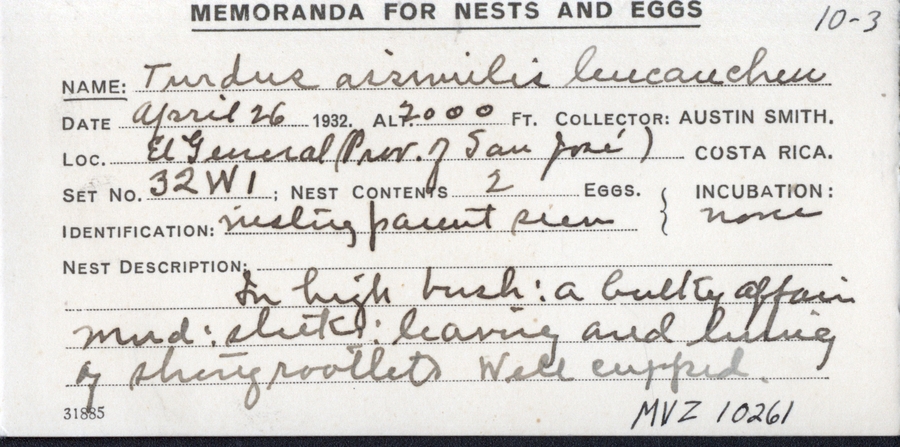 MEMORANDA FOR NESTS AND EGGS
10-3
NAME: Turdus assimilis leucauchen
DATE April 26 1932. ALT. 2000 FT. COLLECTOR: AUSTIN SMITH.
LOC. El General (Prov. of San José) COSTA RICA.
SET No. 32W1 ; NEST CONTENTS 2 EGGS. { INCUBATION:
IDENTIFICATION: nesting parent seen none
NEST DESCRIPTION:
In high bush: a bulky affair
mud: sticks: leaving and lining
of string rootlets Well cupped.
31885
MVZ 10261